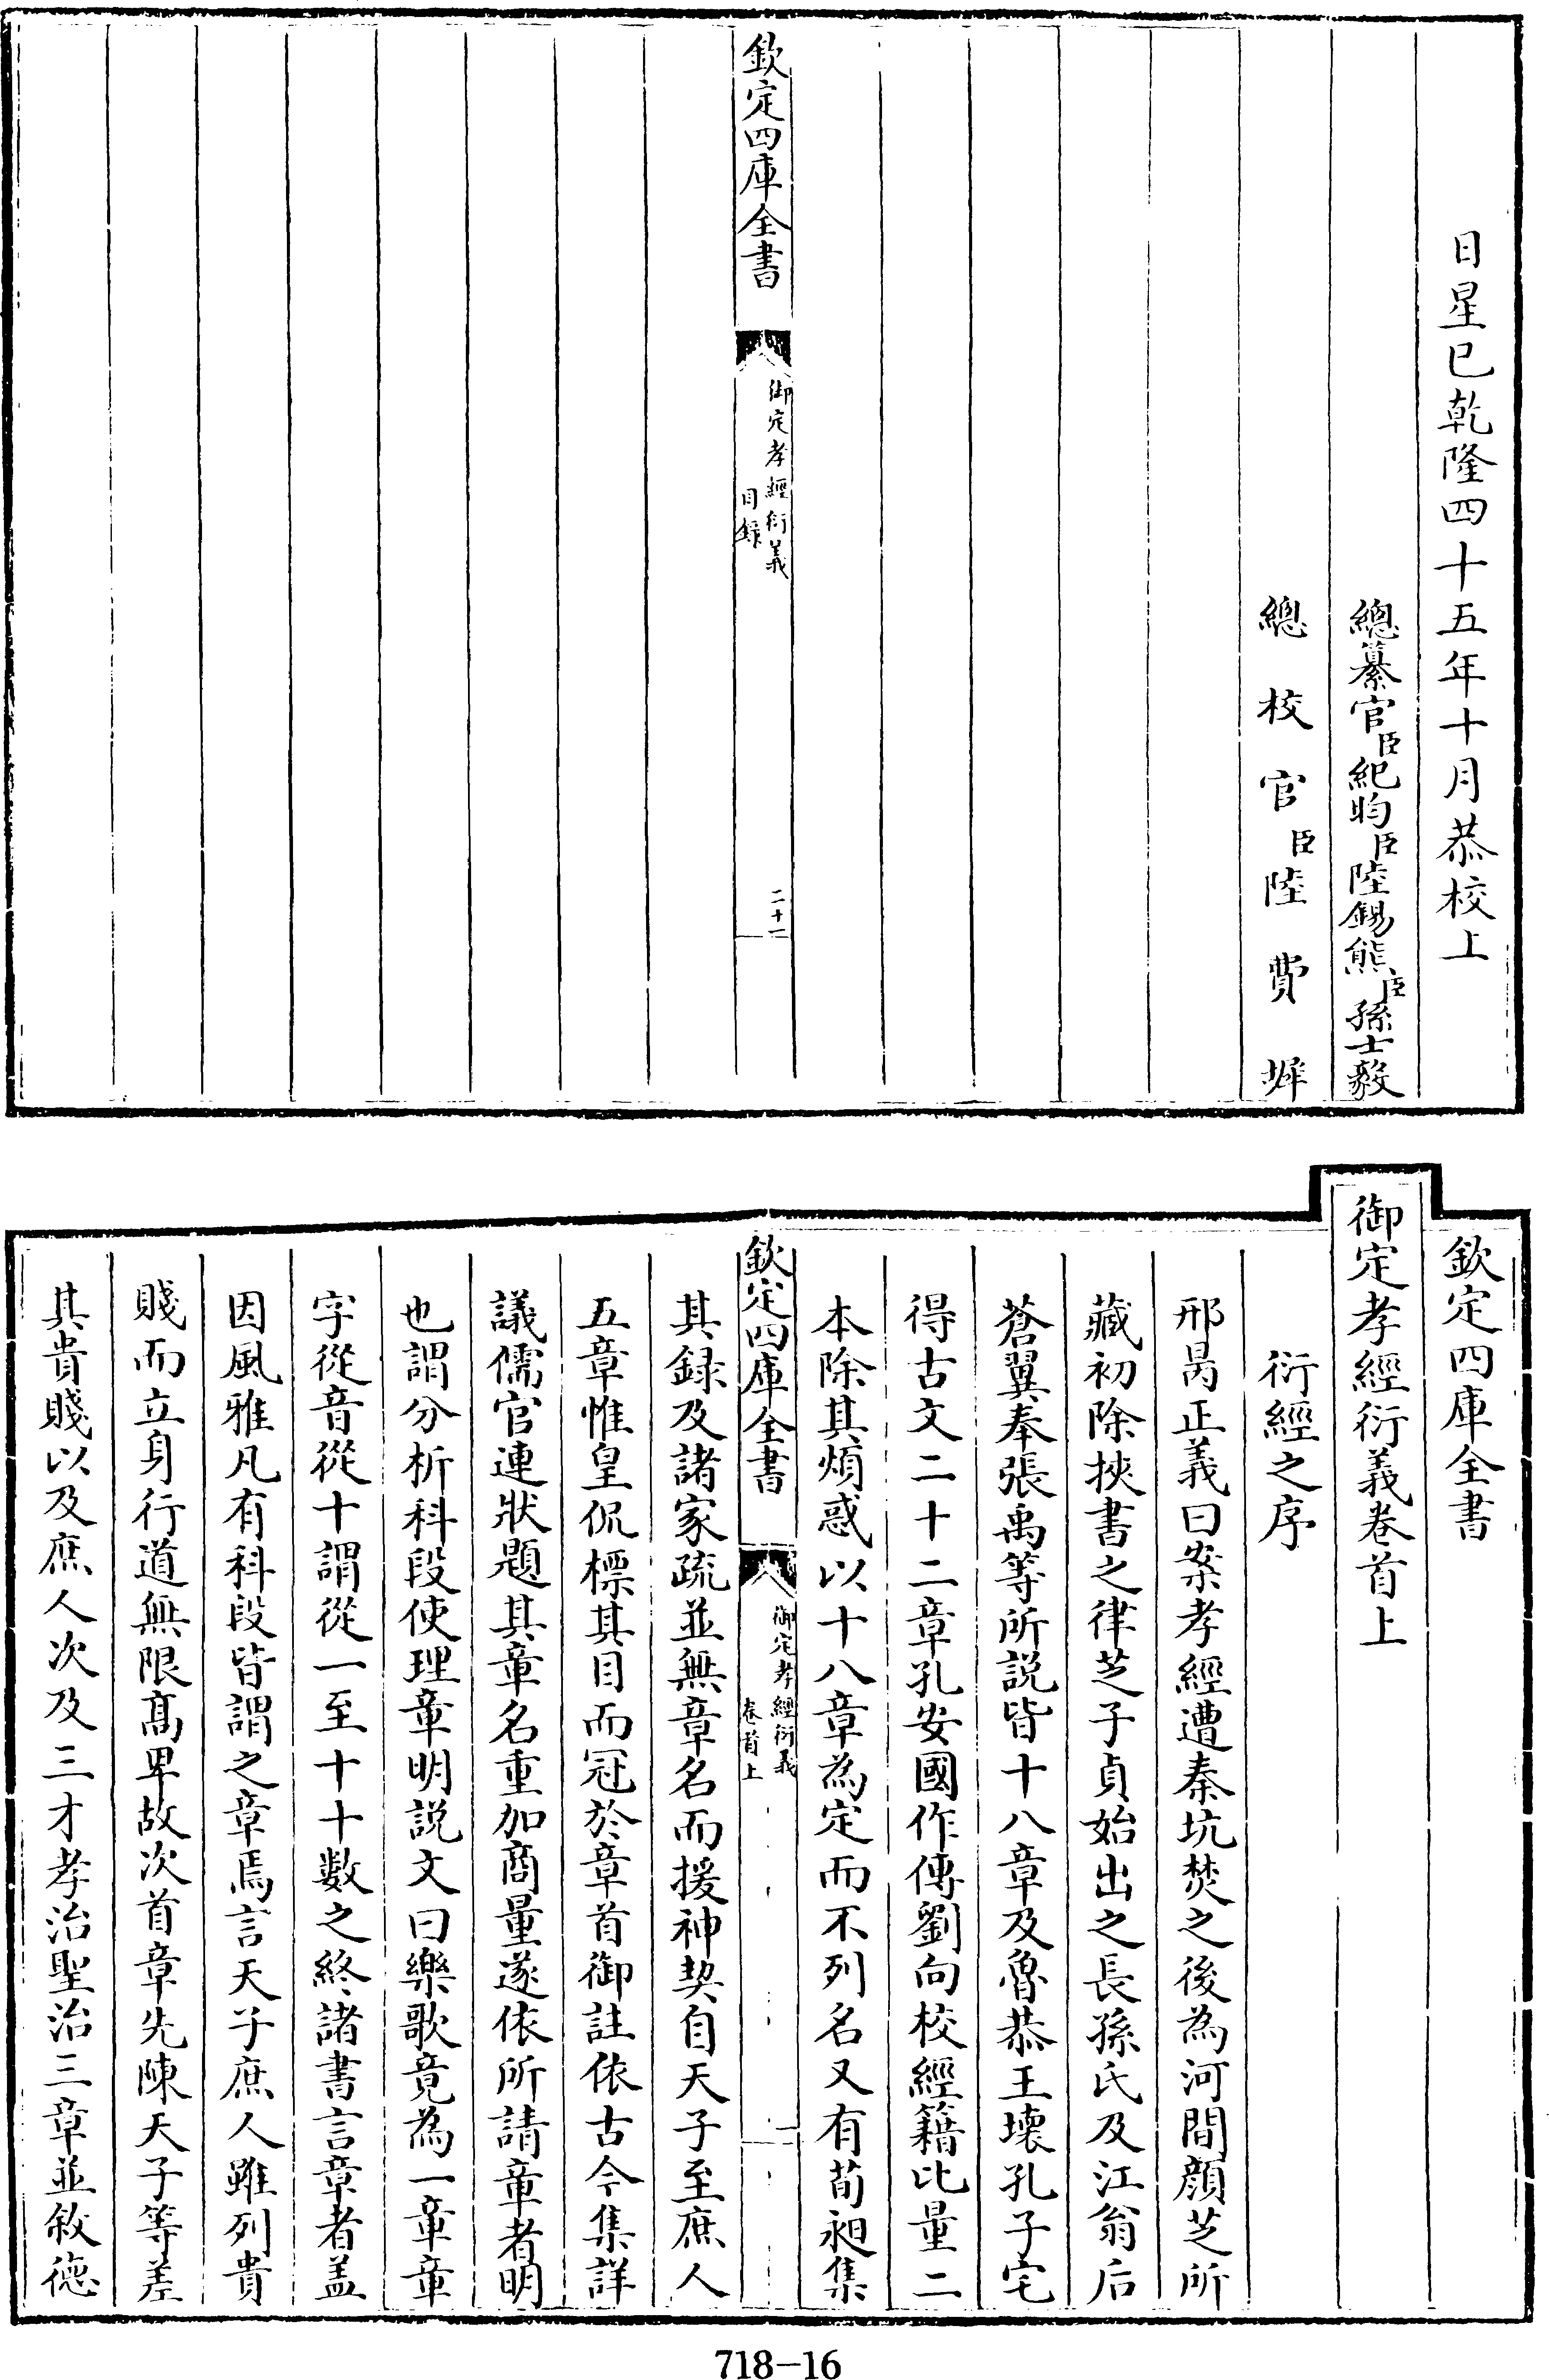 日星已乾隆四十五年十月恭校上
總纂官臣紀昀臣陸錫熊臣孫士毅
總校官臣陸費墀
欽定四庫全書
御定孝經衍義
目録
二十一
欽定四庫全書
御定孝經衍義卷首上
衍經之序
邢昺正義曰案孝經遭秦坑焚之後為河間顏芝所
藏初除挾書之律芝子貞始出之長孫氏及江翁后
蒼翼奉張禹等所説皆十八章及魯恭王壞孔子宅
得古文二十二章孔安國作傳劉向校經籍比量二
本除其煩惑以十八章為定而不列名又有荀昶集
欽定四庫全書
御定孝經衍義
卷首上
一
其録及諸家疏並無章名而援神契自天子至庶人
五章惟皇侃標其目而冠於章首御註依古今集詳
議儒官連狀題其章名重加商量遂依所請章者明
也謂分析科段使理章明説文曰樂歌竟為一章章
字從音從十謂從一至十十數之終諸書言章者盖
因風雅凡有科段皆謂之章焉言天子庶人雖列貴
賤而立身行道無限髙卑故次首章先陳天子等差
其貴賤以及庶人次及三才孝治聖治三章並敘德
718-16